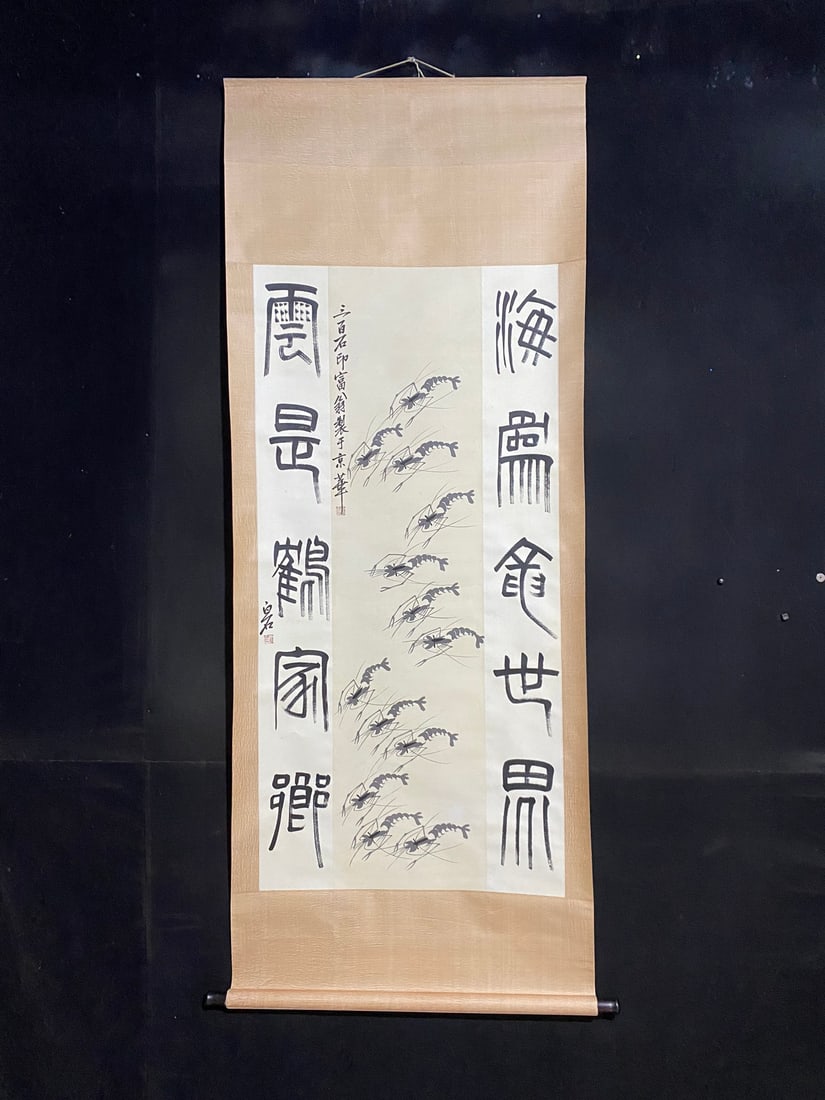 海爲龜世界
三百石印富翁製于京華
雲是鶴家鄉
白石